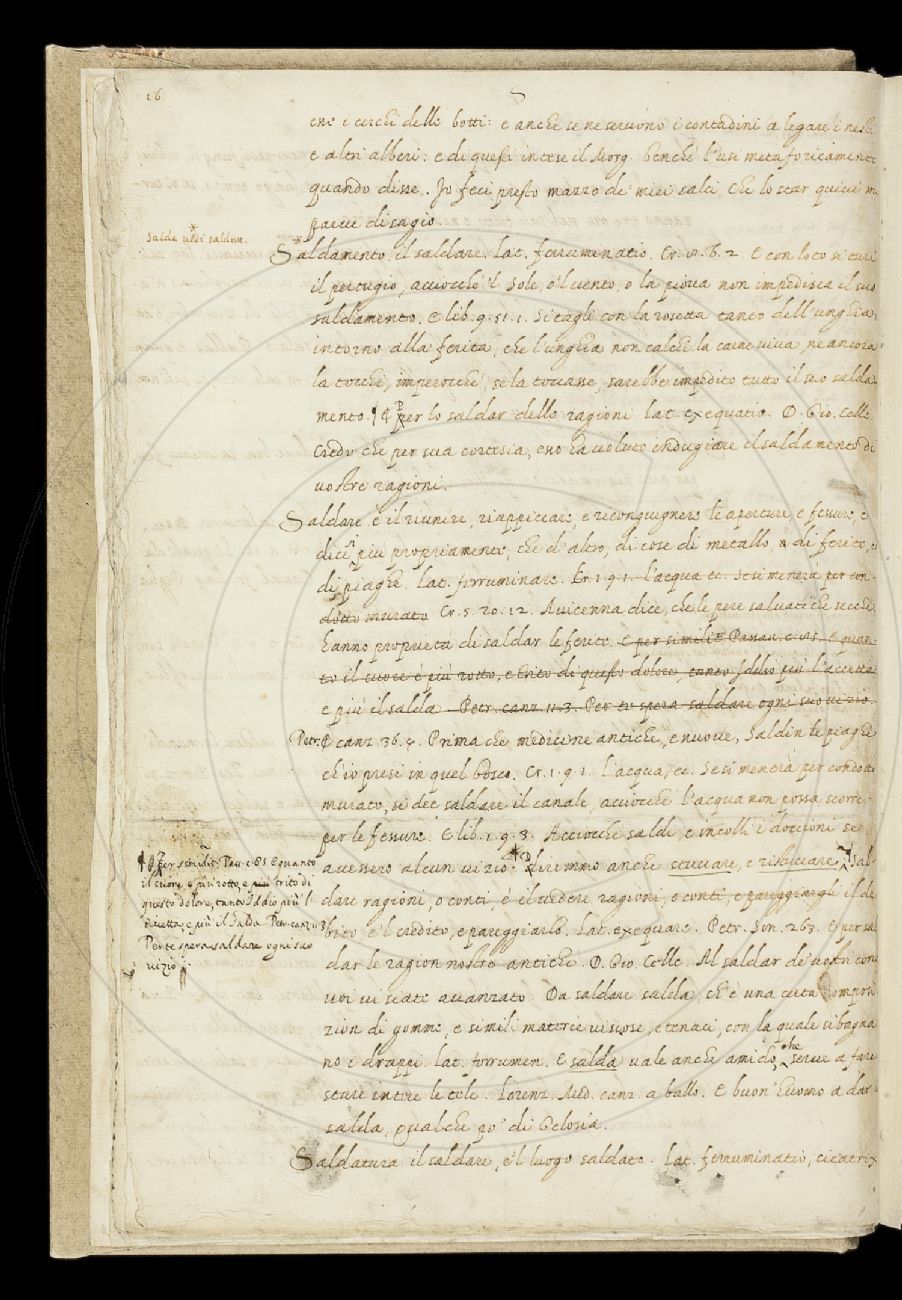 16
S
che i cerchi delle botti: e anche se ne servono i contadini a legare i nesti
e altri alberi: e di questi intese il Morg. benché l'usi metaforicamente
quando disse. Io feci presto mazzo de' miei salci, Che lo star quivi mi
parve disagio.
salda vedi saldare.
Saldamento. il saldare. lat. ferruminatio. Cr. 2. 6. 2. E con loto si turi
il pertugio, acciocchè 'l Sole, o 'l vento, o la piova non impedisca il suo
saldamento. E lib. 9. 51. 1. Si tagli con la rosetta tanto dell'unghia,
intorno alla ferita, che l'unghia non calchi la carne viva, ne ancora
la tocchi, imperocchè, se la toccasse, sarebbe impedito tutto il suo salda-
mento. ¶ E per lo saldar delle ragioni lat. exequatio. D. Gio. Celle
Credo che per sua cortesia, e' no ha voluto indugiare il saldamento di
vostre ragioni.
Saldare. è il riunire, riappiccare, e ricongiugnere le aperture, e fessure, e
dicesi più propriamente, che d'altro, di cose di metallo, di ferite, e
di piaghe. Lat. ferruminare. Cr. 1. 9. 1. l'acqua ec. Se si menerà per con-
dotto murato Cr. 5. 20. 12. Avicenna dice, che le pere salvatiche secche
hanno proprietà di saldar le ferite. E per similit. Panav. c. 85. E quan-
to il cuore è più rotto, e trito di questo dolore, tanto Iddio più l'accetta
e più il salda. Petr. canz. 11. 3. Per te spera saldare ogni suo vizio.
Petr. E canz. 36. 5. Prima che medicine antiche, e nuove, Saldin le piaghe
ch'io presi in quel bosco. Cr. 1. 9. 1. l'acqua, ec. Se si menerà per condotto
murato, si dee saldare il canale, acciocchè l'acqua non possa scorre-
per le fessure. E lib. 1. 9. 3. Acciocche saldi, e incolli i doccioni se
¶ E per similit. Pan. c. 85 E quanto
il cuore è più rotto, e più trito di
questo dolore, tanto Iddio più l'
accetta, e più il salda Petr. canz. 11. 3.
Per te spera saldare ogni suo
vizio
avessero alcun vizio. diremmo anche stuccare, e ristuccare. Sal-
dare ragioni, o conti, è il vedere ragioni, o conti, e pareggiargli il de
bito e 'l credito, e pareggiarlo. Lat. exequare. Petr. Son. 267. E per sal
dar le ragion nostre antiche. D. Gio. Celle. Al saldar de' vostri con
voi vi siate avanzato. Da saldare salda, ch'è una certa composi
zion di gomme, e simili materie viscose, e tenaci, con la quale si bagna
no i drappi. lat. ferrumen. E salda vale anche amido, che serve a fare
stare intire le tele. Lorenz. Med. canz. a ballo. E buon'huomo a dar
salda, qualche po' di Gelosia.
Saldatura il saldare, e 'l luogo saldato. Lat. ferruminatio, cicatrix